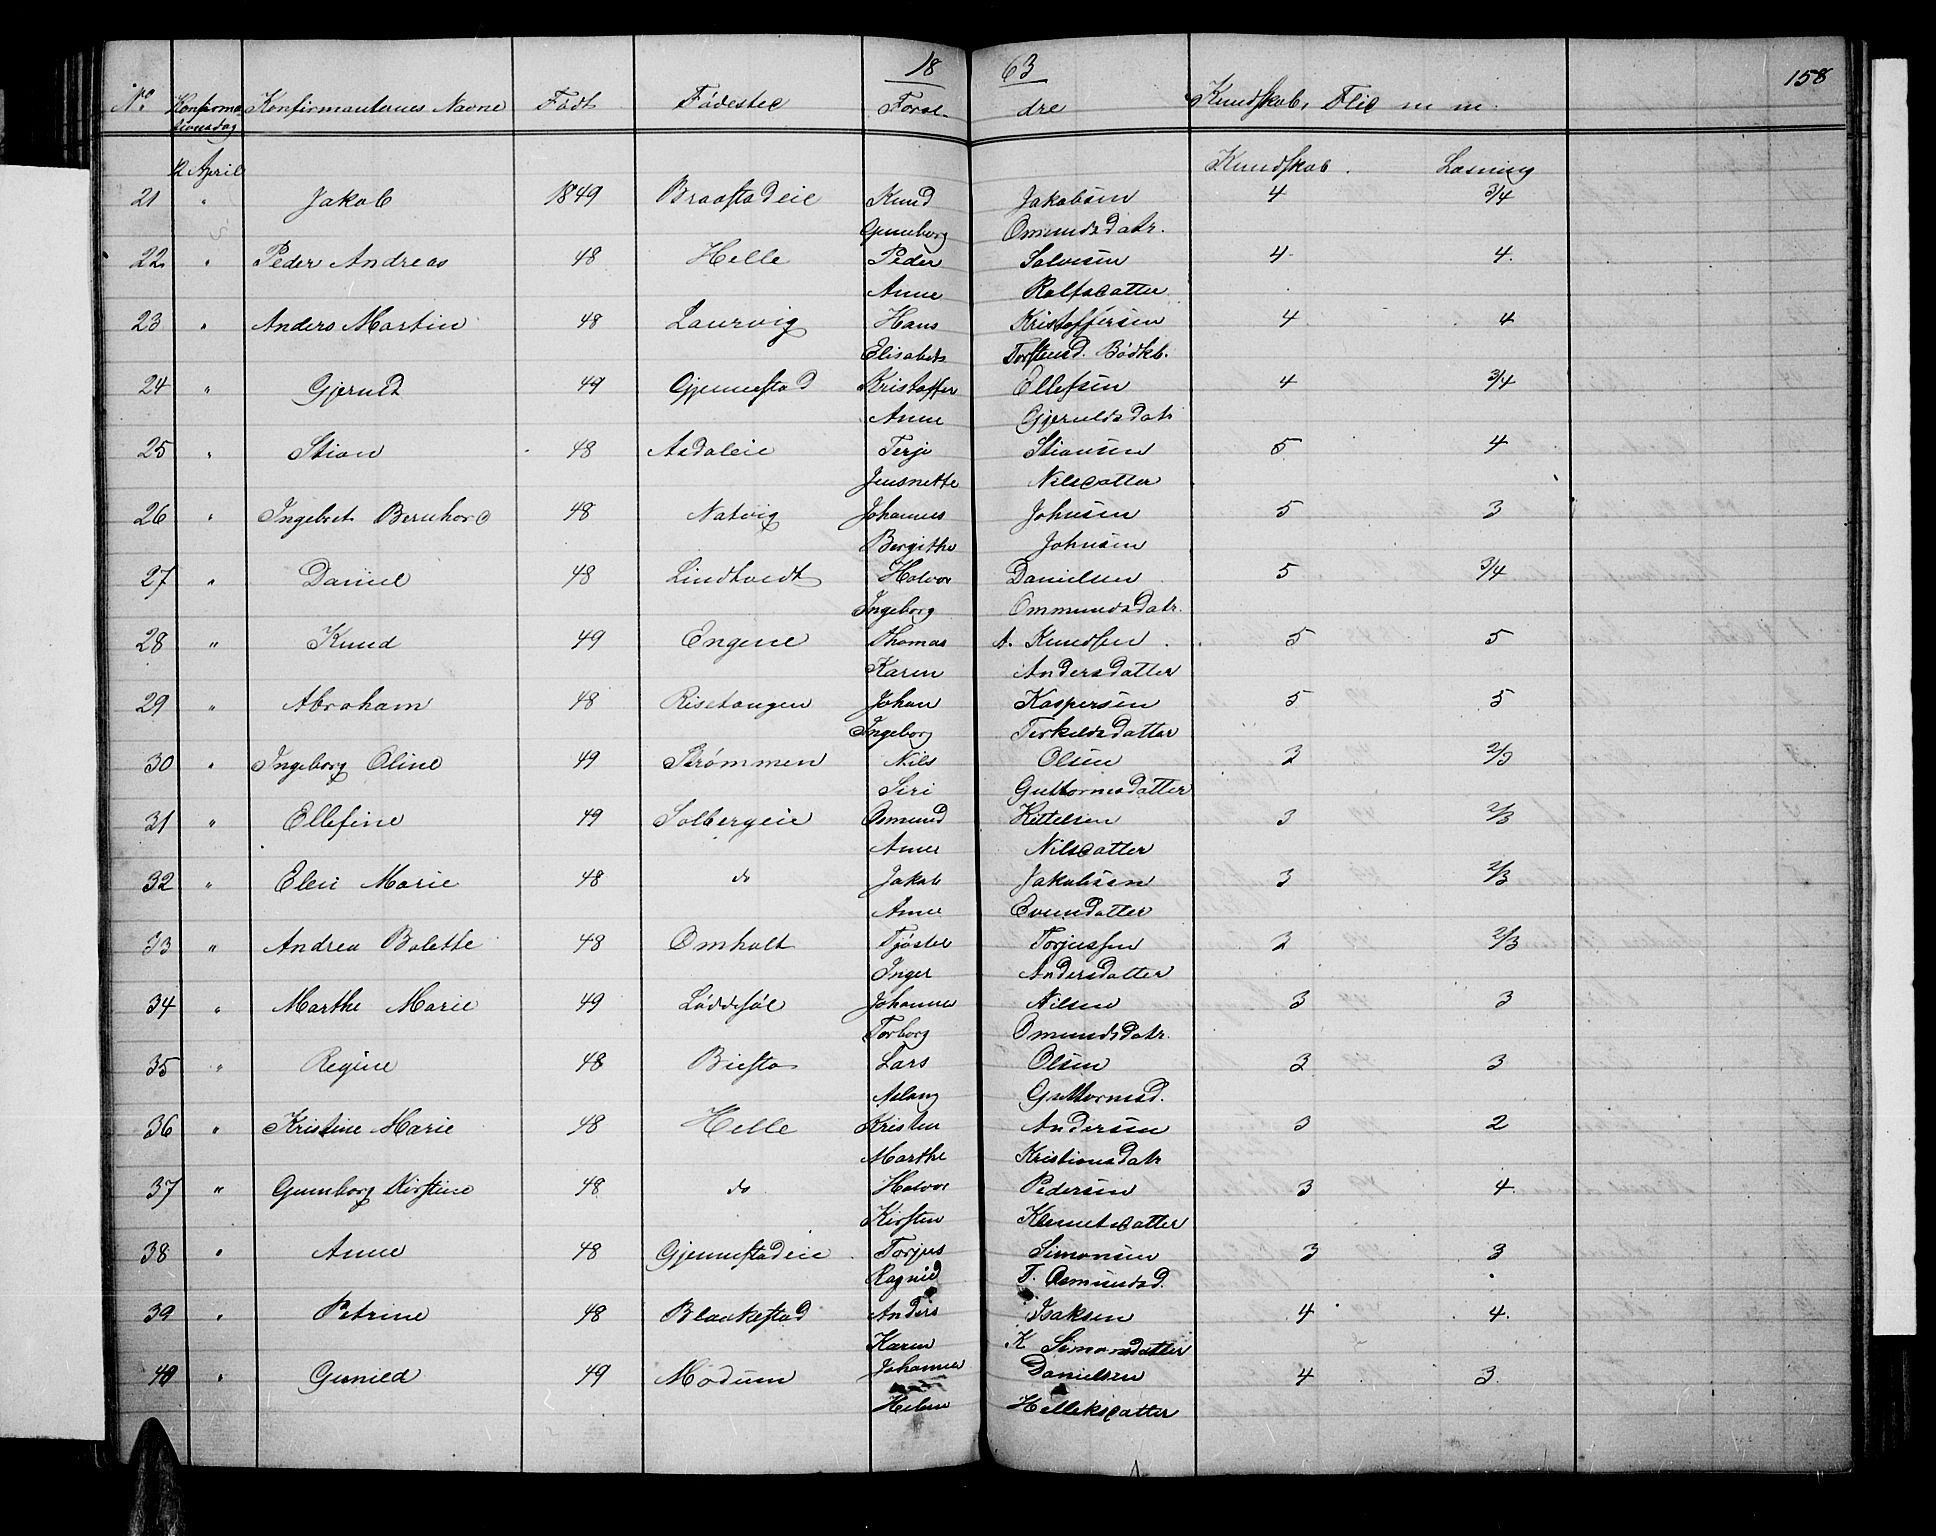 18 63
158
No Konfirmationsdag Konfirmanternes Navne Født Fødested Foræl- dre Kundskab, Flid m m.
12 April Kundskab. Læsning
21 " Jakob 1849 Braastadeie Knud Jakobsen 4 3/4
Guneborg Omundsdatr.
22 " Peder Andreas 48 Helle Peder Salvesen 4 4.
Anne Rolfsdatter
23 " Anders Martin 48 Laurvig Hans Kristoffersen 4 4
Elisabeth Torstensd. Bødkb.
24 " Gjeruld 49 Gjennestad Kristoffer Ellefsen 4 3/4
Anne Gjeruldsdatr
25 " Stian 48 Asdaleie Terje Stiansen 5 4
Jensnette Nilsdatter
26 " Ingebret Bernhard 48 Natvig Johannes Johnsen 5 3
Bergithe Johnsen
27 " Daniel 48 Lindtvedt Halvor Danielsen 5 3/4
Ingeborg Ommundsdatr.
28 " Knud 49 Engene Thomas A. Knudsen 5 5
Karen Andersdatter
29 " Abraham 48 Risetangen Johan Kaspersen 5 5
Ingeborg Terkildsdatter
30 " Ingeborg Oline 49 Strømmen Nils Olsen 3 2/3
Siri Guttormsdatter
31 " Ellefine 49 Solbergeie Osmund Kittelsen 3 2/3
Anne Nilsdatter
32 " Elen Marie 48 do Jakob Jakobsen 3 2/3
Anne Evensdatter
33 " Andrea Bolette 48 Omholt Tjøstel Torjussen 2 2/3
Inger Andersdatter
34 " Marthe Marie 49 Løddesøl Johannes Nilsen 3 3
Torborg Omundsdatr.
35 " Regine 48 Biesta Lars Olsen 3 3
Aslaug Guttormsd.
36 " Kristine Marie 48 Helle Kristen Andersen 3 2
Marthe Kristiansdatr
37 " Gunborg Kirstine 48 do Halvor Pedersen 3 4.
Kirsten Kennetsdatter
38 " Anne 48 Gjennestadeie Torjus Simonsen 3 3
Ragnild T. Osmundsd.
39 " Petrine 48 Blaakestad Anders Isaksen 4 4.
Karen K Simonsdatter
40 " Gunild 49 Modum Johannes Danielsen 4 3.
Helene Helleksdatter